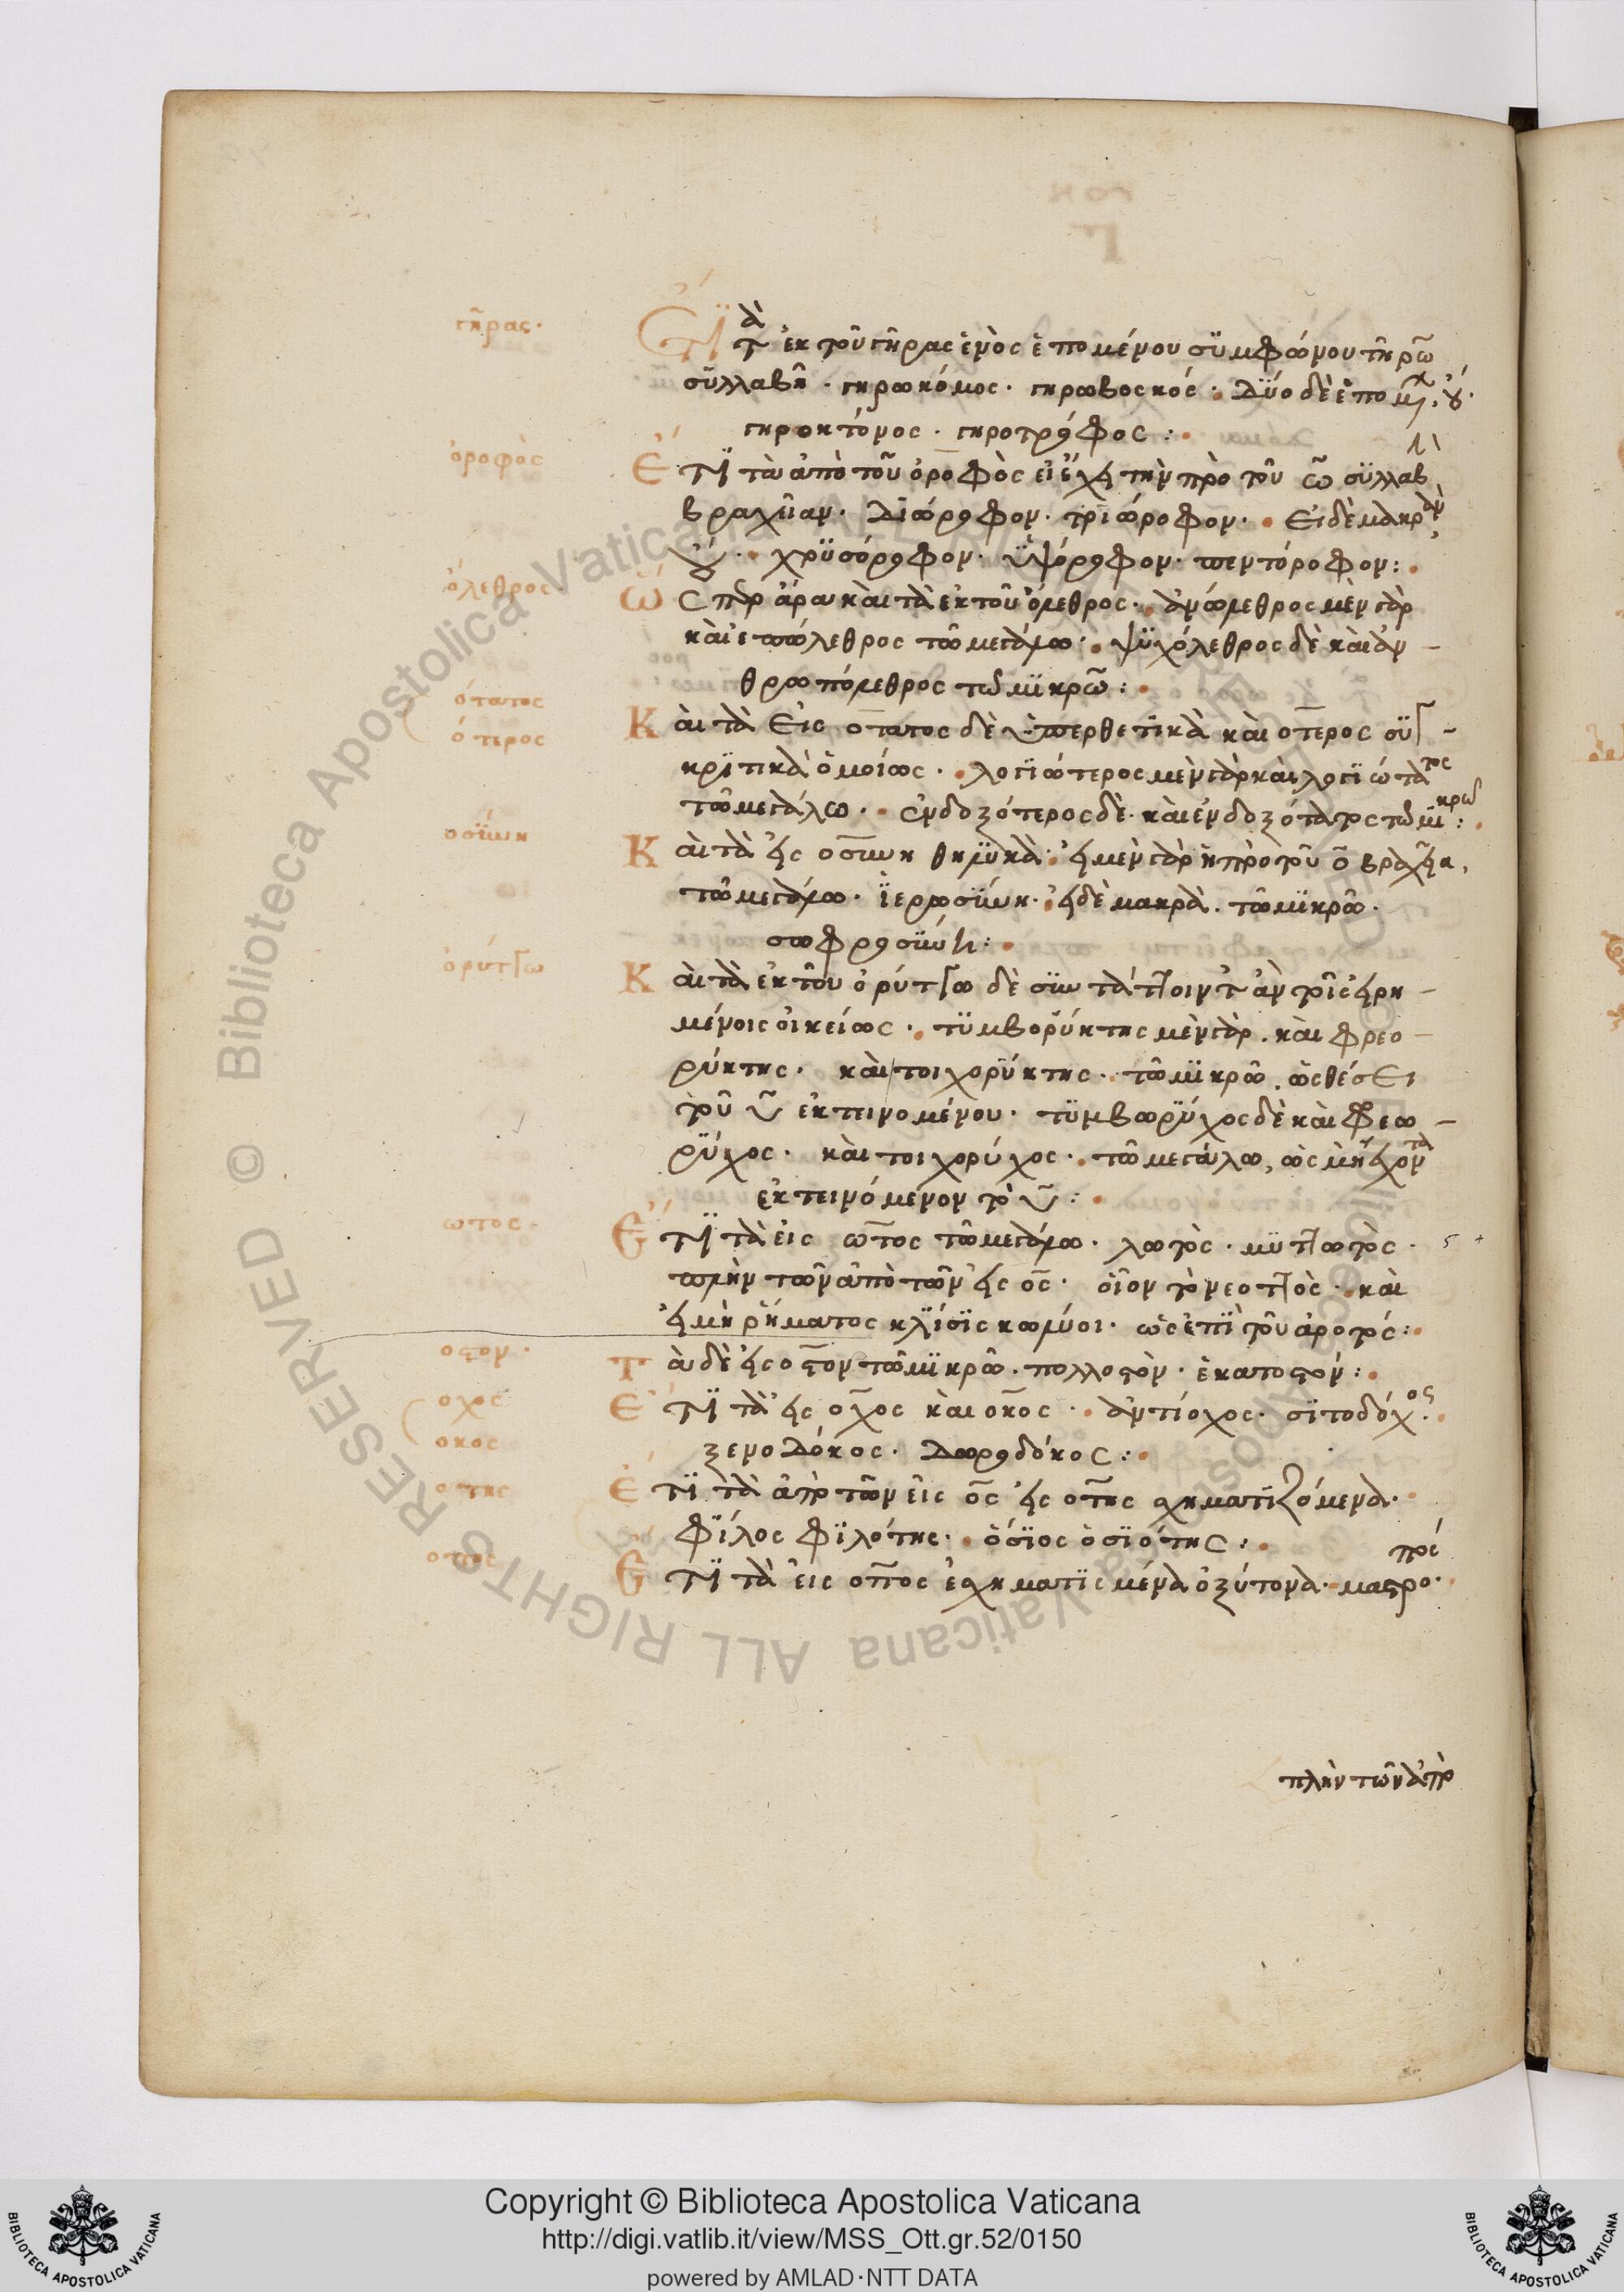 γῆρας·
Ἔτι τὰ ἐκ τοῦ γῆρας ἑνὸς ἑπομένου συμφώνου τῆ ρω
συλλαβῆ· γηρωκόμος· γηρωβοσκός· δύο δὲ ἑπομ. οὔ·
γηροκτόνος· γηροτρόφος:
ὀροφὸς
Ἔτι τὰ ἀπὸ τοῦ ὀροφὸς εἰ ἔχει τὴν πρὸ τοῦ ω συλλαβὴ
βραχεῖαν· διώροφον· τριώροφον· Εἰ δὲ μακρὰν
οὔ· χρυσόροφον· ὑψόροφον· πεντόροφον:
ὄλεθρος
Ὥσπερ ἄρα καὶ τὰ ἐκ τοῦ ὄλεθρος· ἀνώλεθρος μὲν γὰρ
καὶ ἐπώλεθρος τῶ μεγάλω· ψυχόλεθρος δὲ καὶ ἀν
θρωπόλεθρος τῶ μικρῶ:
ότατος
ότερος
Καὶ τὰ εἰς οτατος δὲ ὑπερθετικὰ καὶ οτερος συγ
κριτικὰ ὁμοίως· λογιώτερος μὲν γὰρ καὶ λογιώτατος
τῶ μεγάλω· ἐνδοξότερος δὲ καὶ ἐνδοξότατος τῶ μικρῶ:
οσύνη
Καὶ τὰ εἰς οσύνη θηλυκὰ· εἰ μὲν γὰρ ἡ πρὸ τοῦ ο βραχεῖα,
τῶ μεγάλω· ἱερωσύνη· εἰ δὲ μακρὰ· τῶ μικρῶ·
σωφροσύνη:
ὀρύττω
Καὶ τὰ ἐκ τοῦ ὀρύττω δὲ συντάττοιντ ἂν τοῖς εἰρη
μένοις οἰκείως· τυμβορύκτης μὲν γὰρ· καὶ φρεο
ρύκτης· καὶ τοιχορύκτης· τῶ μικρῶ, ὡς θέσει
τοῦ υ ἐκτεινομένου· τυμβωρύχος δὲ καὶ φρεω
ρύχος· καὶ τοιχορύχος· τῶ μεγάλω, ὡς μὴ ἔχοντα
ἐκτεινόμενον τὸ υ:
ωτος·
Ἔτι τὰ εἰς ωτος τῶ μεγάλω· λωτὸς· μυττωτὸς·
πλὴν τῶν ἀπὸ τῶν εἰς ος· οἷον τὸ νεοττὸς· καὶ
εἰ μὴ ῥήματος κλίσις κωλύοι· ὡς ἐπὶ τοῦ ἀροτός:
οστον·
Τὰ δὲ εἰς οστον τῶ μικρῶ· πολλοστὸν· ἑκατοστόν:
οχος
οκος
Ἔτι τὰ εἰς οχος καὶ οκος· ἀντίοχος· σιτοδόχος·
ξενοδόκος· δωροδόκος:
οτης
Ἔτι τὰ ἀπὸ τῶν εἰς ος εἰς οτης σχηματιζόμενα·
φίλος φιλότης· ὅσιος ὁσιότης:
οπος
Ἔτι τὰ εἰς οπος ἐσχηματισμένα ὀξύτονα· μαστροπός·
πλὴν τῶν ἀπὸ
Copyright © Biblioteca Apostolica Vaticana
http://digi.vatlib.it/view/MSS_Ott.gr.52/0150
powered by AMLAD·NTT DATA
BIBLIOTECA APOSTOLICA VATICANA
BIBLIOTECA APOSTOLICA VATICANA
© Biblioteca Apostolica Vaticana ALL RIGHTS RESERVED
© Biblioteca Apostolica Vaticana ALL RIGHTS RESERVED